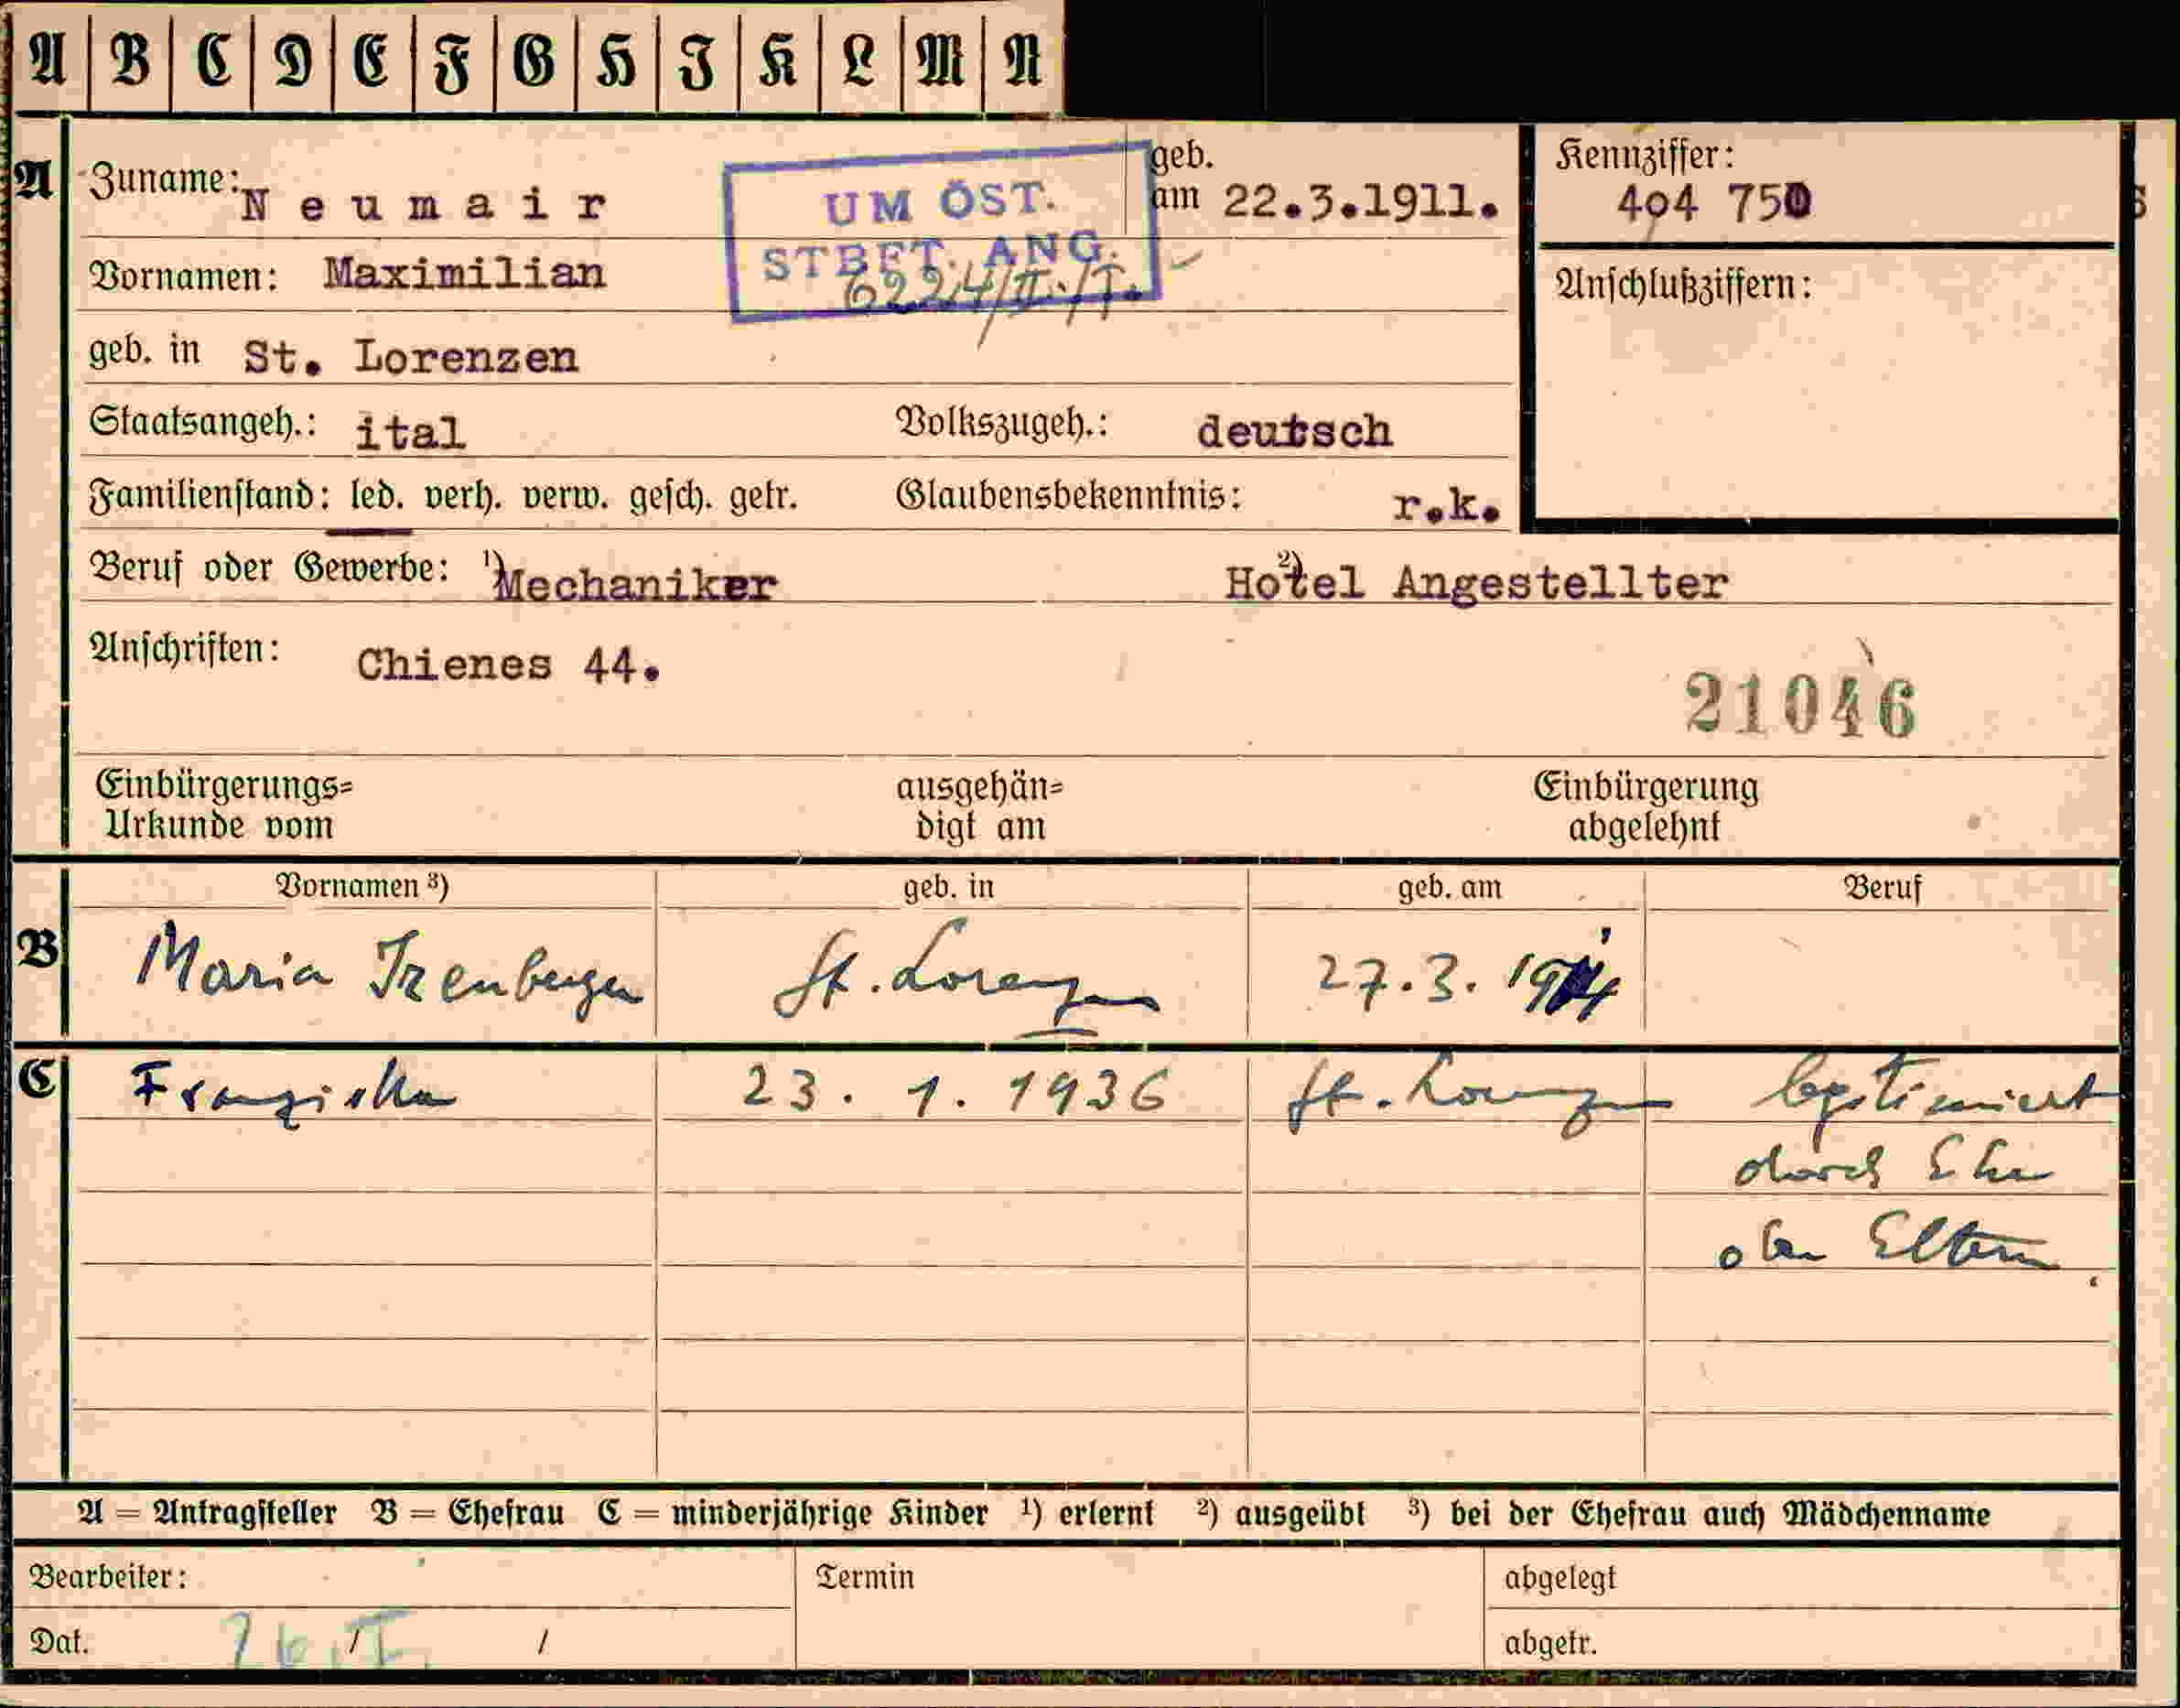 A B C D E F G H I K L M N
A Zuname: Neumair geb. am 22.3.1911. Kennziffer: 404 750
UM ÖST. STBET. ANG.
6224/II./T.
Vornamen: Maximilian
Anschlußziffern:
geb. in St. Lorenzen
Staatsangeh.: ital Volkszugeh.: deutsch
Familienstand: led. verh. verw. gesch. getr. Glaubensbekenntnis: r.k.
Beruf oder Gewerbe: 1) Mechaniker 2) Hotel Angestellter
Anschriften: Chienes 44.
21046
Einbürgerungs= Urkunde vom ausgehän= digt am Einbürgerung abgelehnt
Vornamen 3) geb. in geb. am Beruf
B Maria Irenberger St. Lorenzen 27.3.
C Franziska 23. 1. 1936 St. Lorenzen legitimiert
durch Ehe
der Eltern.
A = Antragsteller B = Ehefrau C = minderjährige Kinder 1) erlernt 2) ausgeübt 3) bei der Ehefrau auch Mädchenname
Bearbeiter: Termin abgelegt
Dat. / / abgetr.